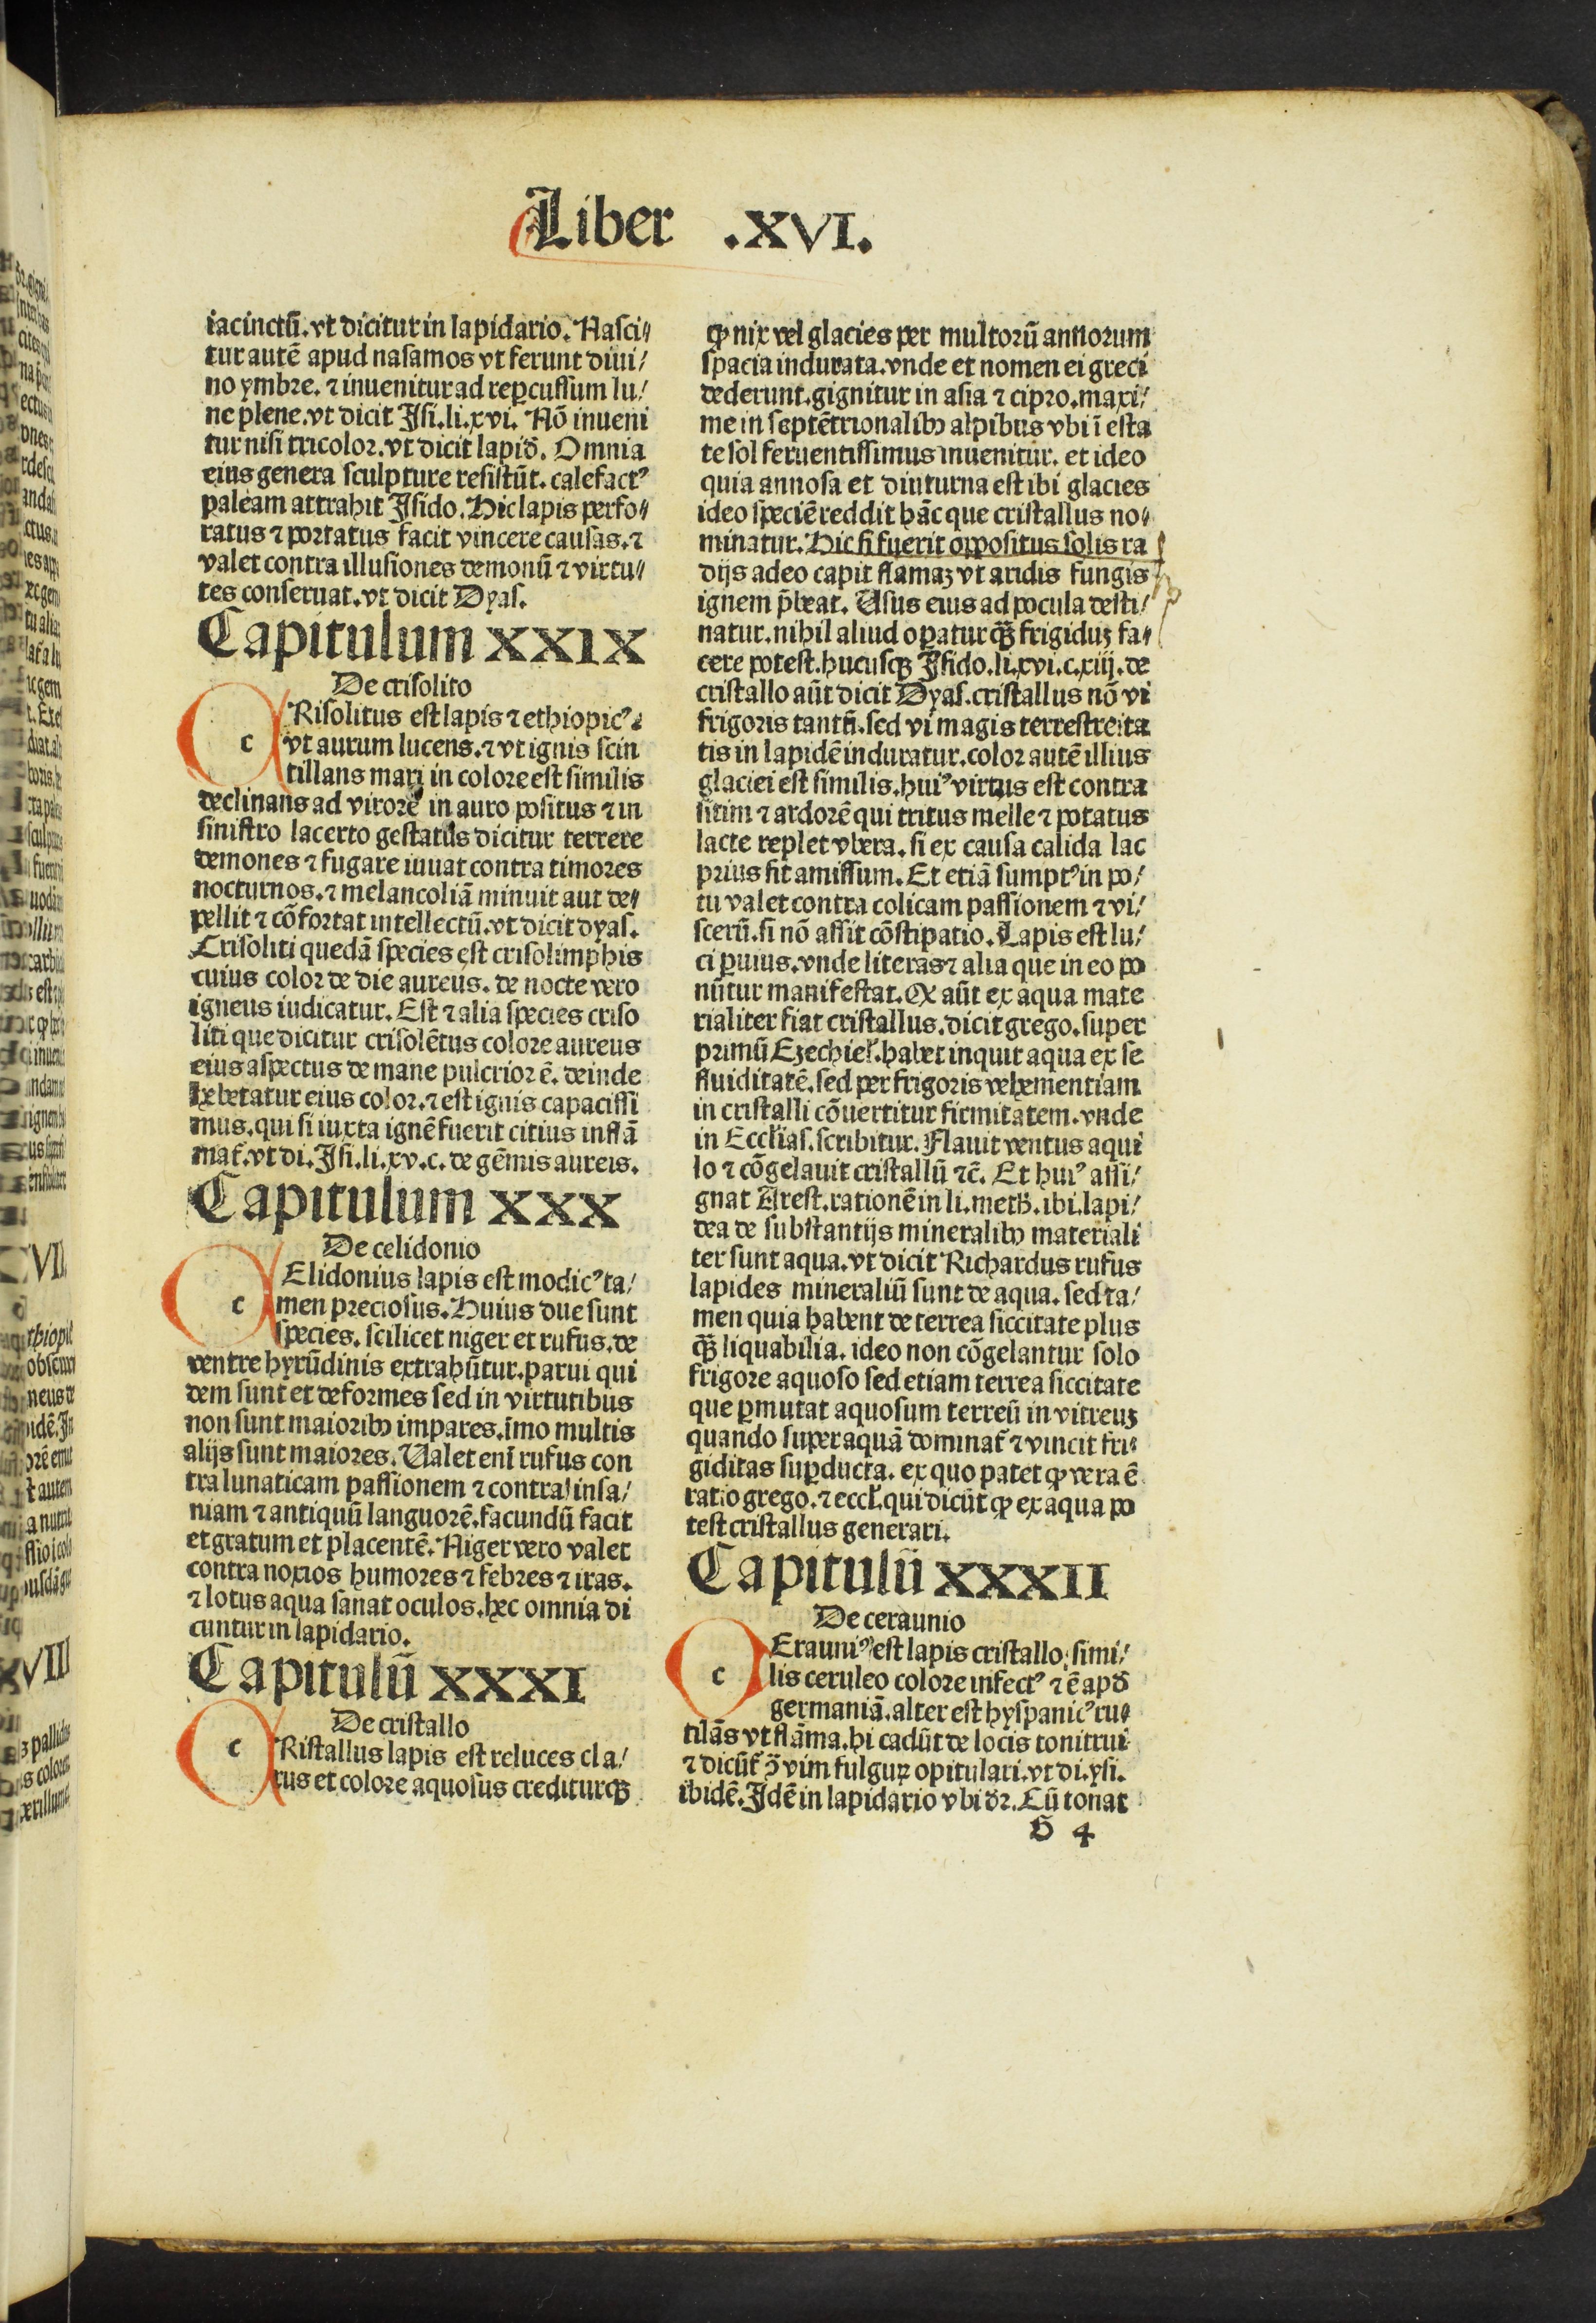 Liber .XVI.
iacinctū. vt dicitur in lapidario. Nasci⸗
tur autē apud nasamos vt ferunt diui/
no ymbre. ⁊ inuenitur ad reꝑcussum lu/
ne plene. vt dicit Isi. li. xvi. Nō inueni
tur nisi tricolor. vt dicit lapid̄. Omnia
eius genera sculpture resistūt. calefactꝰ
paleam attrahit Isido. Hic lapis perfo⸗
ratus ⁊ portatus facit vincere causas. ⁊
valet contra illusiones demonū ⁊ virtu⸗
tes conseruat. vt dicit Dyas.
Capitulum XXIX
De crisolito
c Risolitus est lapis ⁊ ethiopicꝰ.
vt aurum lucens. ⁊ vt ignis scin
tillans mari in colore est similis
declinans ad virorē in auro positus ⁊ in
sinistro lacerto gestatus dicitur terrere
demones ⁊ fugare iuuat contra timores
nocturnos. ⁊ melancoliā minuit aut de⸗
pellit ⁊ cōfortat intellectū. vt dicit dyas.
Crisoliti quedā species est crisolimphis
cuius color de die aureus. de nocte vero
igneus iudicatur. Est ⁊ alia species criso
liti que dicitur crisolētus colore aureus
eius aspectus de mane pulcrior ē. deinde
hebetatur eius color. ⁊ est ignis capacissi
mus. qui si iuxta ignē fuerit citius inflā
mat̄. vt di. Isi. li. xv. c. de gēmis aureis.
Capitulum XXX
De celidonio
c Elidonius lapis est modicꝰ ta/
men preciosus. Huius due sunt
species. scilicet niger et rufus. de
ventre hyrūdinis extrahūtur. parui qui
dem sunt et deformes sed in virtutibus
non sunt maioribꝫ impares. īmo multis
alijs sunt maiores. Ualet enī rufus con
tra lunaticam passionem ⁊ contra insa/
niam ⁊ antiquū languorē. facundū facit
et gratum et placentē. Niger vero valet
contra noxios humores ⁊ febres ⁊ iras.
⁊ lotus aqua sanat oculos. hec omnia di
cuntur in lapidario.
Capitulū XXXI
De cristallo
c Ristallus lapis est reluces cla/
rus et colore aquosus crediturqꝫ
ꝙ nix vel glacies per multorū annorum
spacia indurata. vnde et nomen ei greci
dederunt. gignitur in asia ⁊ cipro. maxi/
me in septētrionalibꝫ alpibus vbi ī esta
te sol feruentissimus inuenitur. et ideo
quia annosa et diuturna est ibi glacies
ideo speciē reddit hāc que cristallus no⸗
minatur. Hic si fuerit oppositus solis ra
dijs adeo capit flamaꝫ vt aridis fungis
ignem p̄beat. Usus eius ad pocula desti/
natur. nihil aliud oꝑatur qꝫ̄ frigiduꝫ fa⸗
cere potest. hucusqꝫ Isido. li. xvi. c. xiij. de
cristallo aūt dicit Dyas. cristallus nō vi
frigoris tantū. sed vi magis terrestreita
tis in lapidē induratur. color autē illius
glaciei est similis. huiꝰ virtus est contra
sitim ⁊ ardorē qui tritus melle ⁊ potatus
lacte replet vbera. si ex causa calida lac
prius sit amissum. Et etiā sumptꝰ in po/
tu valet contra colicam passionem ⁊ vi/
scerū. si nō assit cōstipatio. Lapis est lu/
ci ꝑuius. vnde literas ⁊ alia que in eo po
nūtur manifestat. Ꝙ aūt ex aqua mate
rialiter fiat cristallus. dicit grego. super
primū Ezechieł. habet inquit aqua ex se
fluiditatē. sed per frigoris vehementiam
in cristalli cōuertitur firmitatem. vnde
in Eccłias. scribitur. Flauit ventus aqui
lo ⁊ cōgelauit cristallū ⁊c̄. Et huiꝰ assi/
gnat Arest. rationē in li. meth̄. ibi. lapi/
dea de substantijs mineralibꝫ materiali
ter sunt aqua. vt dicit Richardus rufus
lapides mineraliū sunt de aqua. sed ta/
men quia habent de terrea siccitate plus
qꝫ̄ liquabilia. ideo non cōgelantur solo
frigore aquoso sed etiam terrea siccitate
que ꝑmutat aquosum terreū in vitreuꝫ
quando super aquā dominat̄ ⁊ vincit fri⸗
giditas suꝑducta. ex quo patet ꝙ vera ē
ratio grego. ⁊ eccł. qui dicūt ꝙ ex aqua po
test cristallus generari.
Capitulū XXXII
De ceraunio
c Erauniꝰ est lapis cristallo simi/
lis ceruleo colore infectꝰ ⁊ ē apd̄
germaniā. alter est hyspanicꝰ ru⸗
tilās vt flāma. hi cadūt de locis tonitrui
⁊ dicūt̄ ꝯ̄ vim fulguꝝ opitulari. vt di. ysi.
ibidē. Idē in lapidario vbi dr̄. Cū tonat
ħ 4